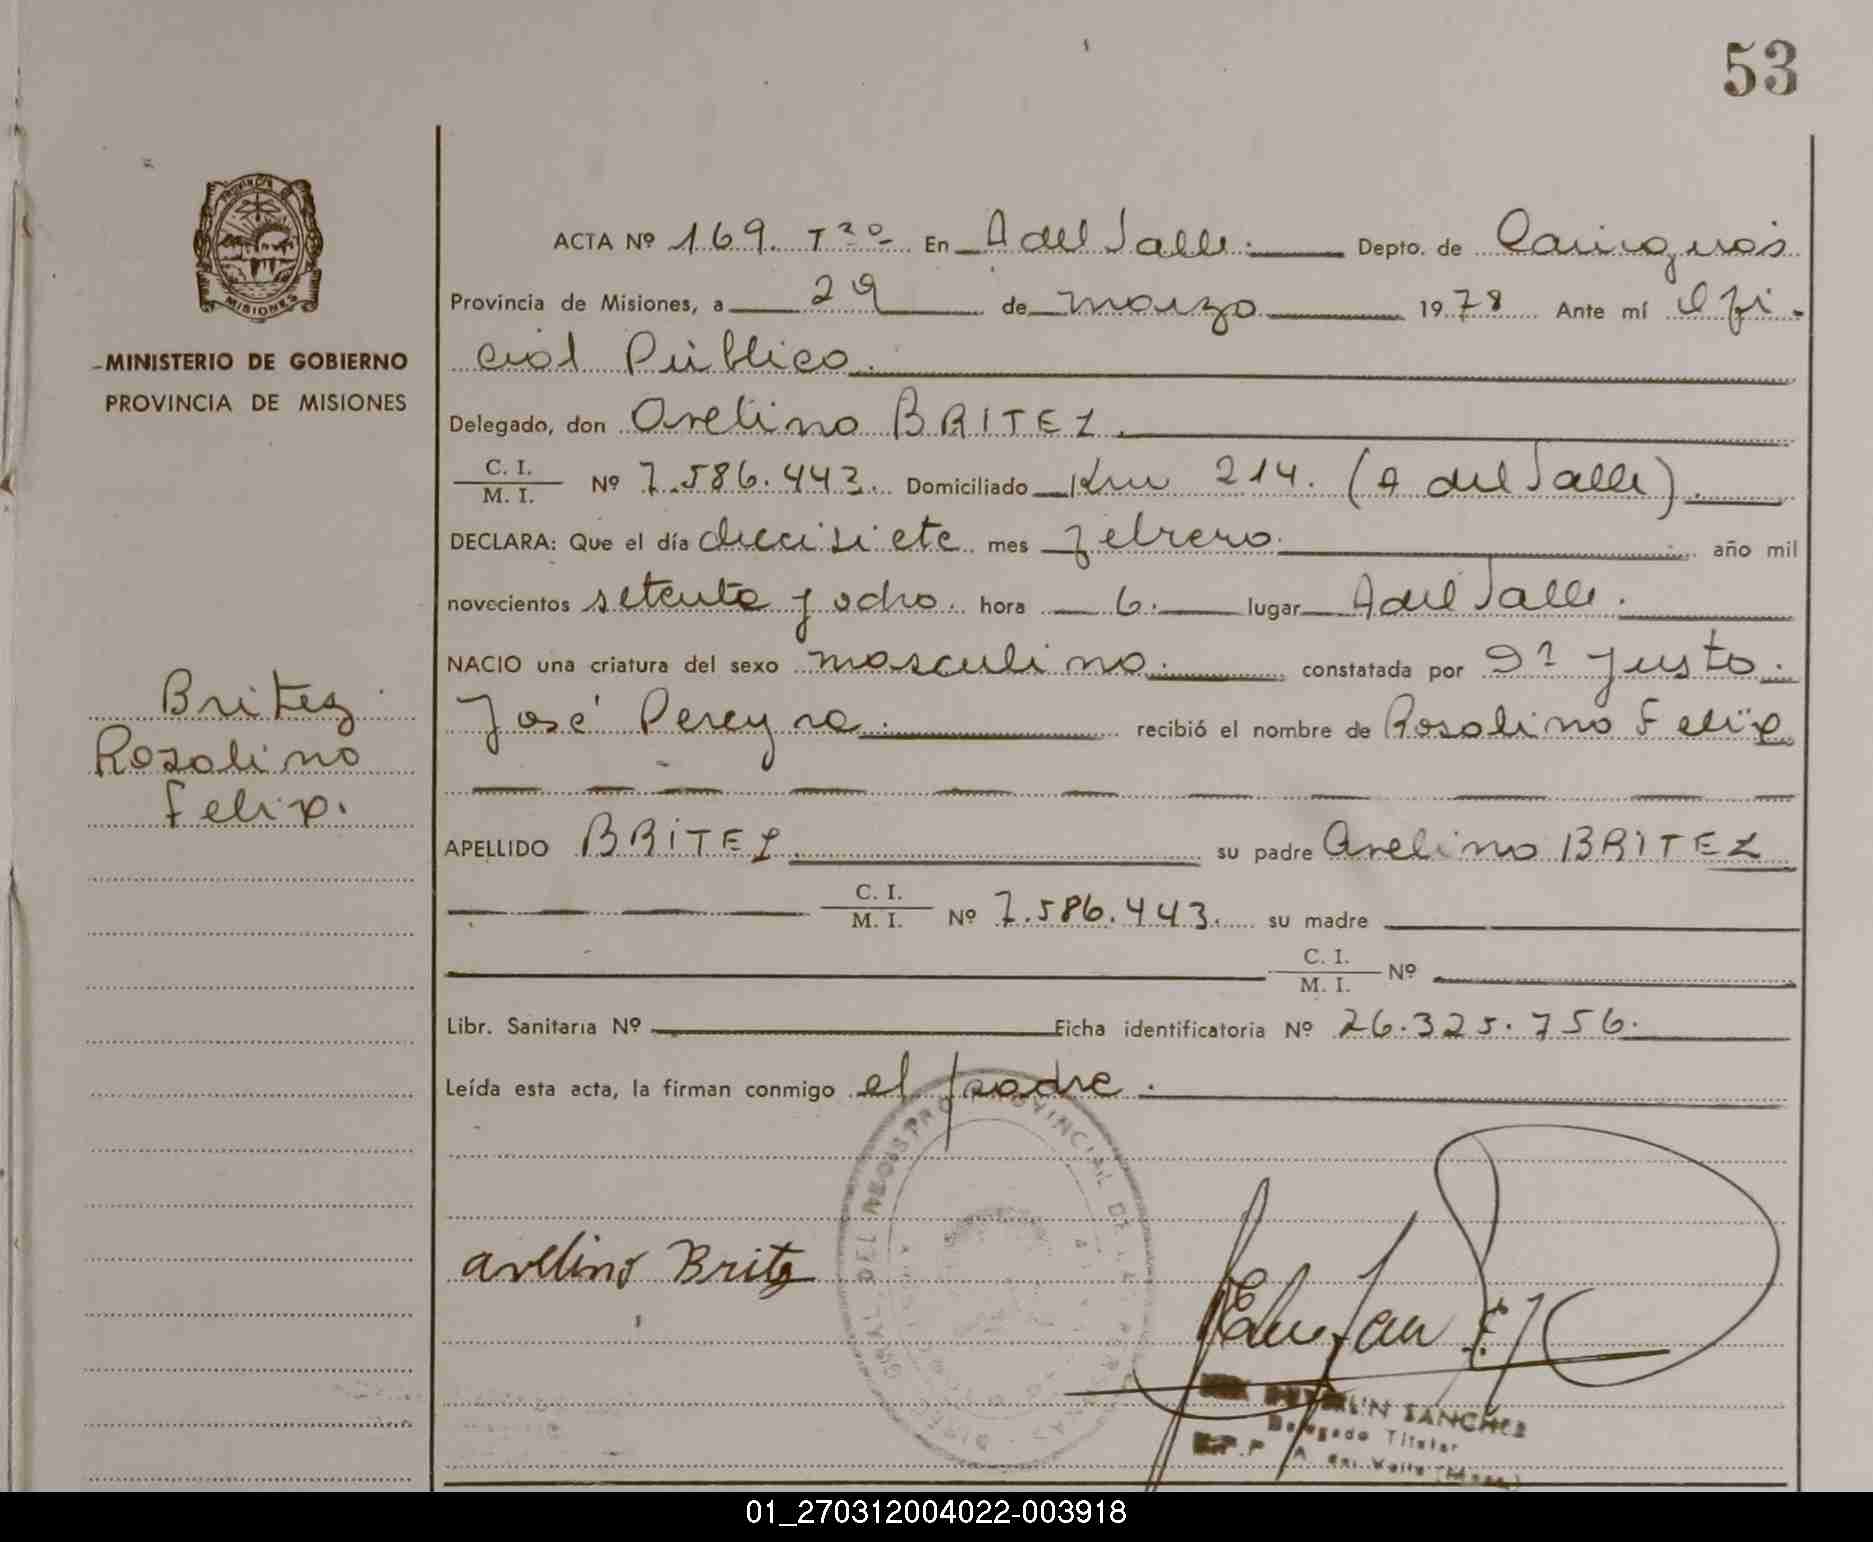 53
PROVINCIA DE
MISIONES
MINISTERIO DE GOBIERNO
PROVINCIA DE MISIONES
Britez
Rosolino
Felix.
ACTA Nº 169. Tº 2º En A del Valle. Depto. de Cainguás
Provincia de Misiones, a 29 de marzo 1978 Ante mí Ofi-
cial Público.
Delegado, don Avelino BRITEZ.
C. I.
M. I. Nº 7.586.443. Domiciliado Km 214. (A del Valle).
DECLARA: Que el día diecisiete mes febrero. año mil
novecientos setenta y ocho. hora 6. lugar A del Valle.
NACIO una criatura del sexo masculino. constatada por Justo.
José Pereyra. recibió el nombre de Rosolino Felix
APELLIDO BRITEZ su padre Avelino BRITEZ
C. I.
M. I. Nº 7.586.443. su madre
C. I.
M. I. Nº
Libr. Sanitaria Nº Ficha identificatoria Nº 26.325.756.
Leída esta acta, la firman conmigo el padre.
DEL REGISTRO PROVINCIAL DE LAS PERSONAS
avelino Britez
SANCHEZ
Delegado Titular
A. del Valle (Mnes.)
01_270312004022-003918